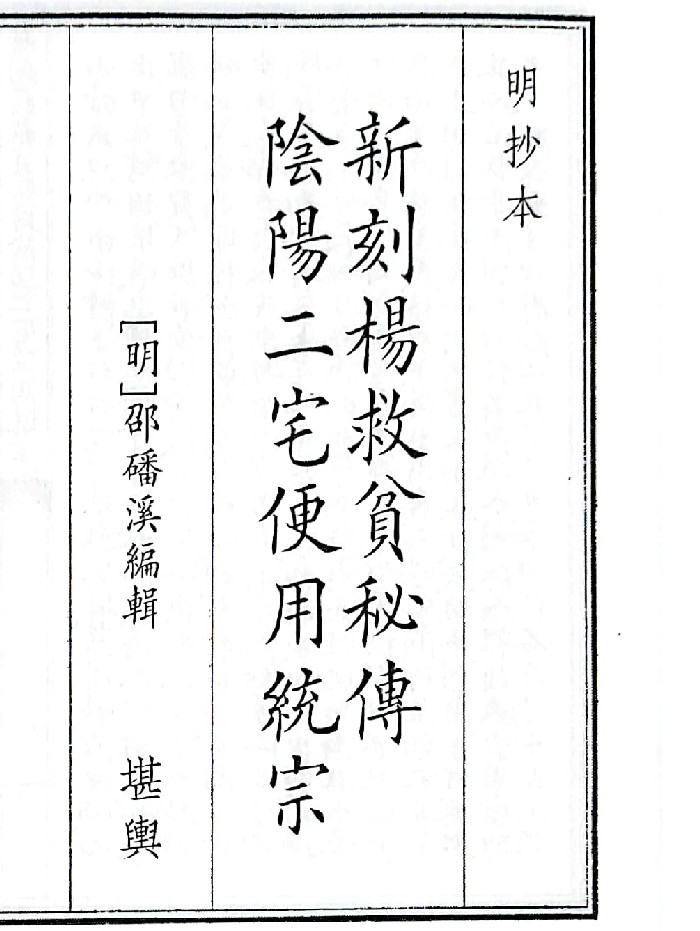 明抄本
新刻楊救貧秘傳
陰陽二宅便用統宗
［明］邵磻溪編輯
堪輿